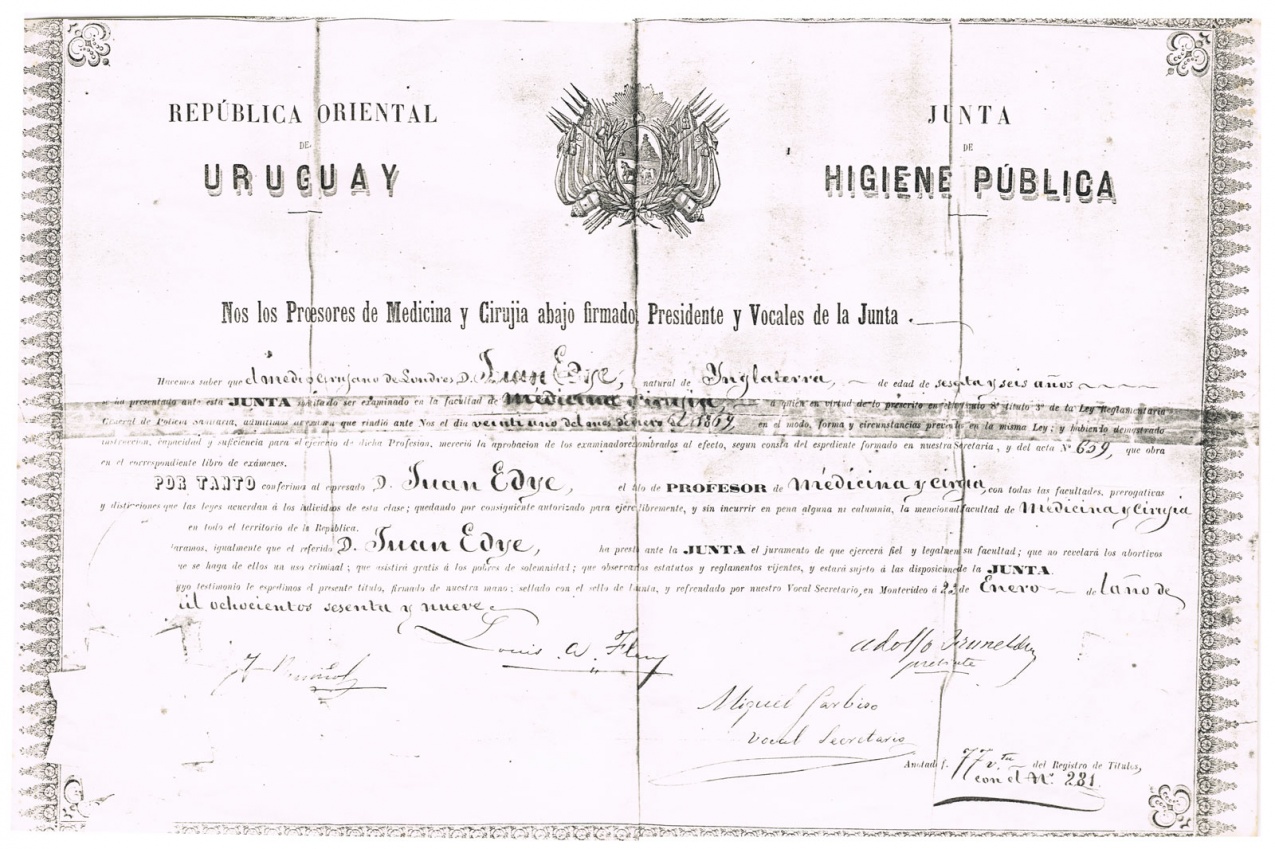 REPÚBLICA ORIENTAL
DE
URUGUAY
JUNTA
DE
HIGIENE PÚBLICA
Nos los Profesores de Medicina y Cirujia abajo firmado, Presidente y Vocales de la Junta
Hacemos saber que el medico cirujano de Londres D. Juan Edye, natural de Inglaterra, de edad de sesenta y seis años
se ha presentado ante esta JUNTA solicitado ser examinado en la facultad de medicina y cirujia a quien en virtud de lo prescrito en el título 3º de la Ley Reglamentaria
General de Policia Sanitaria, admitimos que rindió ante Nos el dia veinti uno del mes de Enero de 1869, en el modo, forma y circunstancias en la misma Ley; y habiento demostrado
instruccion, capacidad y suficiencia para el ejercicio de dicha Profesion, mereció la aprobacion de los examinadores nombrados al efecto, segun consta del espediente formado en nuestra Secretaria, y del acta Nº 659, que obra
en el correspondiente libro de exámenes.
POR TANTO conferimos al espresado D. Juan Edye, el de PROFESOR de medicina y Cirjia, con todas las facultades, prerogativas
y distinciones que las leyes acuerdan á los individuos de esta clase; quedando por consiguiente autorizado para ejercer libremente, y sin incurrir en pena alguna ni calumnia, la mencionada facultad de Medicina y Cirujia
en todo el territorio de la República.
laramos, igualmente que el referido D. Juan Edye, ha prest ante la JUNTA el juramento de que ejercerá fiel y legalmente su facultad; que no revelará los abortivos
que se haga de ellos un uso criminal; que asistirá gratis á los pobres de solemnidad; que observará los estatutos y reglamentos vijentes, y estará sujeto á las disposiciones de la JUNTA.
uyo testimonio le espedimos el presente título, firmado de nuestra mano; sellado con el sello de la Junta, y refrendado por nuestro Vocal Secretario, en Montevideo á 22 de Enero del año de
il ochocientos sesenta y nueve
Louis A. Fleury
Adolfo Brunel
Miguel Garbiso
Vocal Secretario
Anotado f. 77 vta del Registro de Titulos,
con el Nº 281